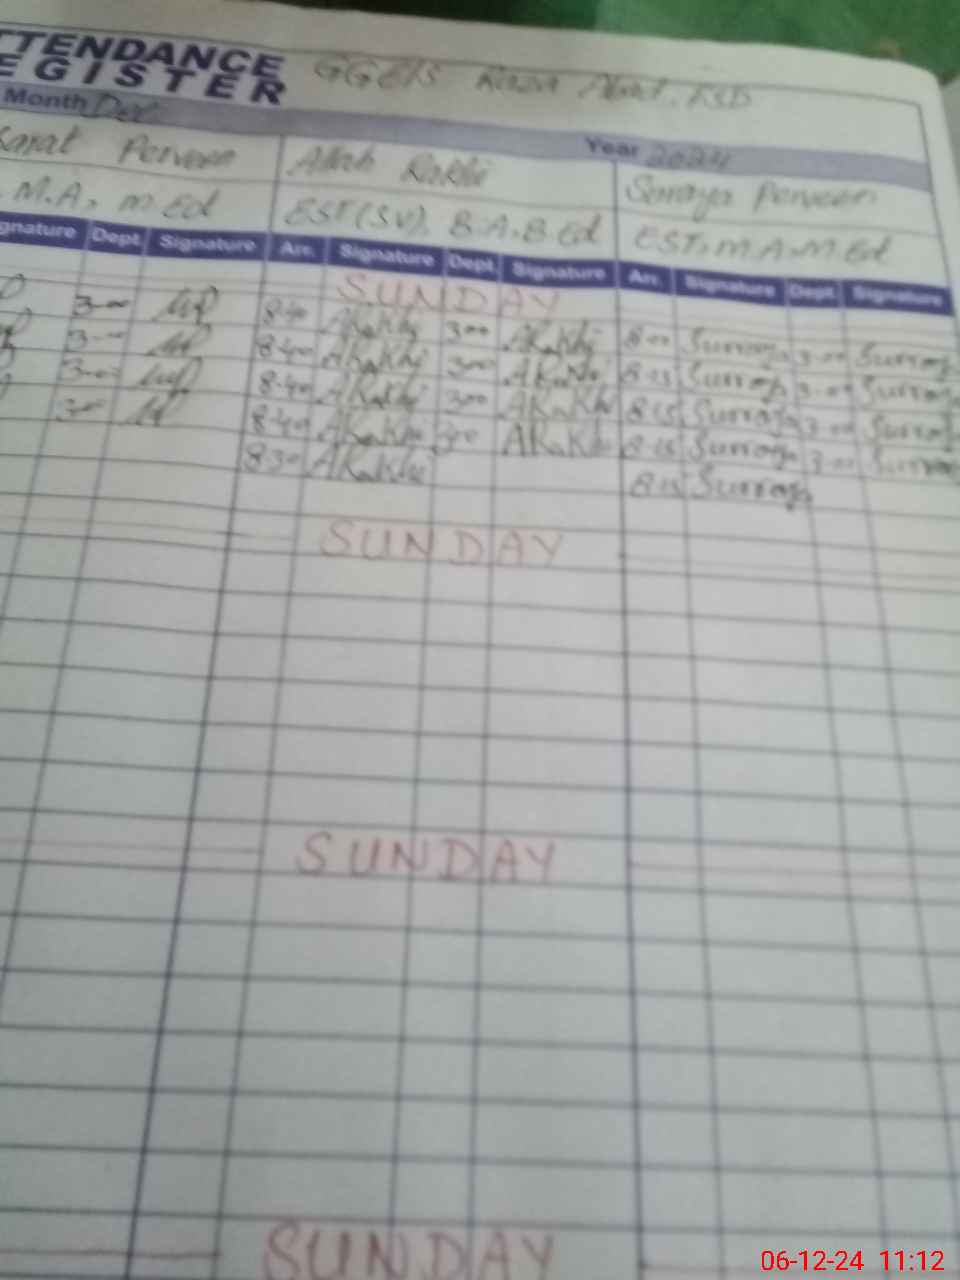 TTENDANCE
EGISTER GGE/S Raza Abad, FSD
Month Dec Year 2024
Perveen Allah Rakhi Suraya Perveen
M.A, M.Ed EST(SV), B.A.B.Ed EST, M.A.M.Ed
gnature Dept. Signature Arr. Signature Dept. Signature Arr. Signature Dept. Signature
SUNDAY
3-00 8-40 ARakhi 300 ARakhi 8-00 Surraya 3-00 Surraya
3-00 8-40 ARakhi 300 ARakhi 8-15 Surraya 3-00 Surraya
3-00 8-40 ARakhi 300 ARakhi 8-15 Surraya 3-00 Surraya
300 8-40 ARakhi 300 ARakhi 8-15 Surraya 3-00 Surraya
8-30 ARakhi 8-15 Surraya
SUNDAY
SUNDAY
SUNDAY
06-12-24 11:12